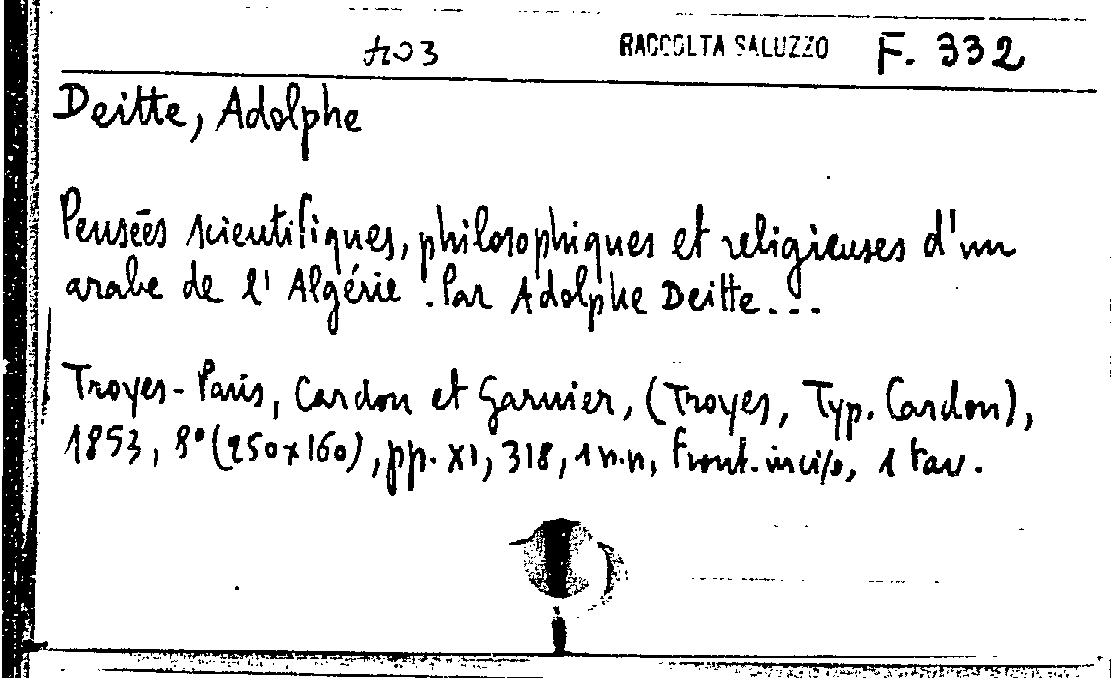 RACCOLTA SALUZZO F. 332
Deitte, Adolphe
Pensées scientifiques, philosophiques et religieuses d'un
arabe de l'Algérie. Par Adolphe Deitte...
Troyes-Paris, Cardon et Garnier, (Troyes, Typ. Cardon),
1853, 8° (250x160), pp. XI, 318, 1 n.n, front. inciso, 1 tav.